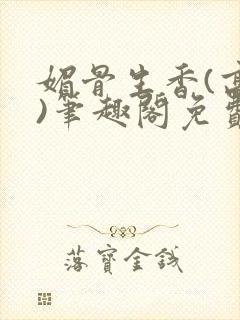 媚骨生香(高
)笔趣阁免费
落宝金钱